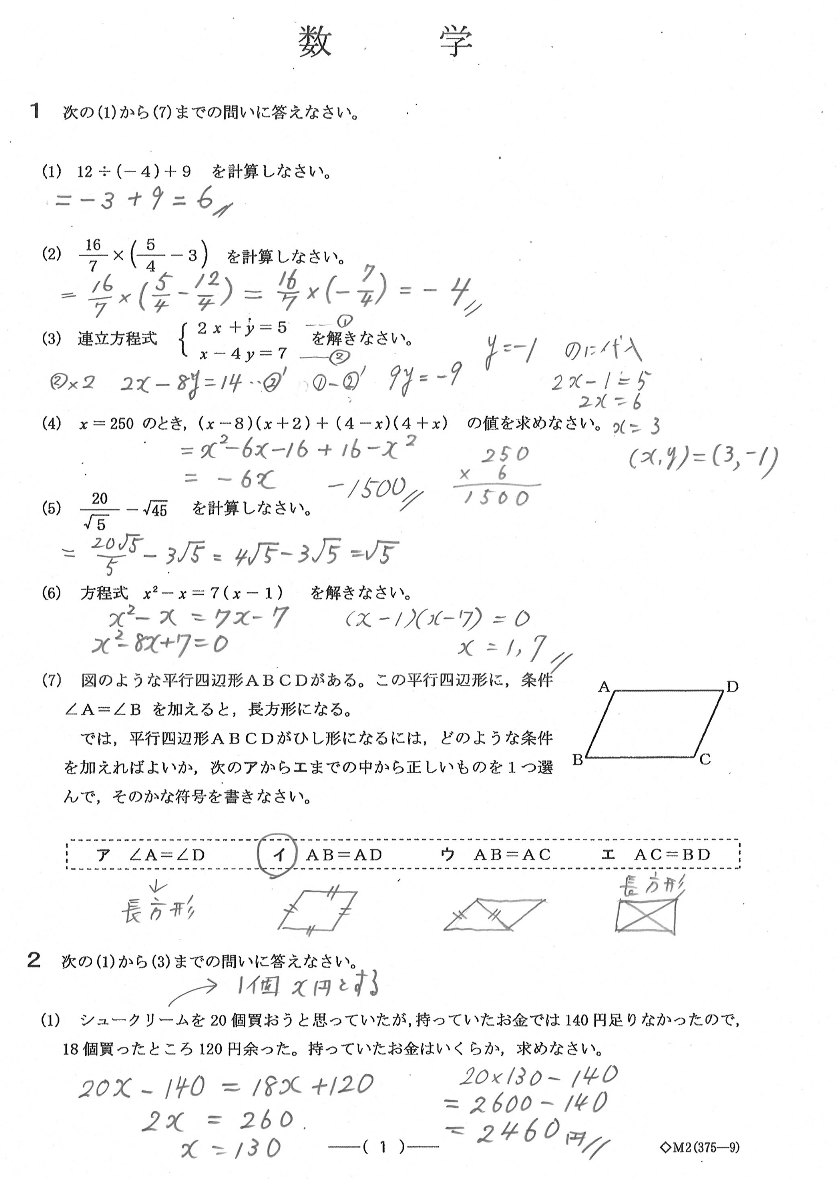 数 学
1 次の(1)から(7)までの問いに答えなさい。
(1) 12÷(−4)+9 を計算しなさい。
= −3 + 9 = 6
(2) 16/7 × (5/4 − 3) を計算しなさい。
= 16/7 × (5/4 − 12/4) = 16/7 × (− 7/4) = − 4
(3) 連立方程式 { 2x+y=5 ―① x−4y=7 ―② を解きなさい。
②×2 2x−8y=14 …②′ ①−②′ 9y=−9
y=−1 のに代入
2x−1=5
2x=6
x=3
(x,y)=(3,−1)
(4) x=250 のとき,(x−8)(x+2)+(4−x)(4+x) の値を求めなさい。
= x²−6x−16 + 16−x²
= −6x −1500
250
× 6
1500
(5) 20/√5 − √45 を計算しなさい。
= 20√5/5 − 3√5 = 4√5 − 3√5 = √5
(6) 方程式 x²−x=7(x−1) を解きなさい。
x²− x = 7x−7 (x−1)(x−7) = 0
x²−8x+7=0 x = 1, 7
(7) 図のような平行四辺形ABCDがある。この平行四辺形に,条件
∠A=∠B を加えると,長方形になる。
では,平行四辺形ABCDがひし形になるには,どのような条件
を加えればよいか,次のアからエまでの中から正しいものを1つ選
んで,そのかな符号を書きなさい。
A D
B C
ア ∠A=∠D イ AB=AD ウ AB=AC エ AC=BD
↓
長方形
長方形
2 次の(1)から(3)までの問いに答えなさい。
→ 1個 x円とする
(1) シュークリームを20個買おうと思っていたが,持っていたお金では140円足りなかったので,
18個買ったところ120円余った。持っていたお金はいくらか,求めなさい。
20x − 140 = 18x + 120
2x = 260
x = 130
20×130 − 140
= 2600 − 140
= 2460円
―( 1 )―
◇M2(375―9)